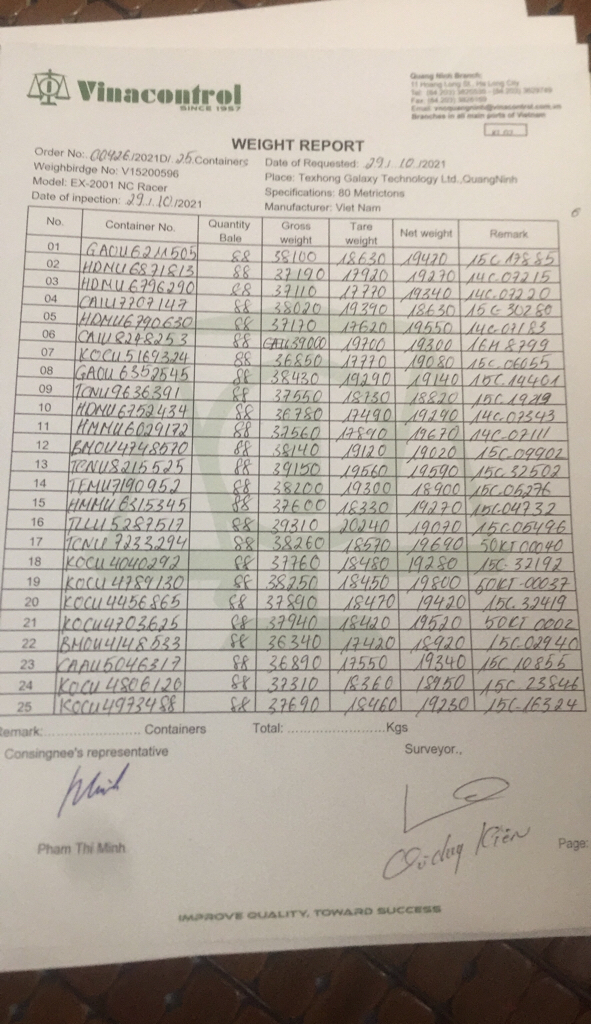 Vinacontrol
SINCE 1957
Quang Ninh Branch:
11 Hoang Long St., Ha Long City
Branches in all main ports of Vietnam
WEIGHT REPORT
Order No: 00426/2021D/ 25.Containers
Date of Requested: 29/ 10 /2021
Weighbirdge No: V15200596
Place: Texhong Galaxy Technology Ltd.,QuangNinh
Model: EX-2001 NC Racer
Specifications: 80 Metrictons
Date of inpection: 29/ 10/2021
Manufacturer: Viet Nam
No. Container No. Quantity Bale Gross weight Tare weight Net weight Remark
01 GAOU6211505 88 38100 18630 19470 15C 17885
02 HDMU6871813 88 37190 17920 19270 14C.07215
03 HDMU6796290 88 37110 17770 19340 14C.07220
04 CAIU7707147 88 38020 19390 18630 15C 30280
05 HDMU6790630 88 37170 17620 19550 14C.07183
06 CAIU8248253 88 39000 19700 19300 16H 8799
07 KOCU5169324 88 36850 17770 19080 15C.06055
08 GAOU6352545 88 38430 19290 19140 15C.14401
09 TCNU9636391 88 37550 18730 18820
10 HDMU6752434 88 36780 17490 19290 14C.07343
11 HMMU6029172 88 37560 17890 19670 14C-07111
12 BMOU4748570 88 38140 19120 19020 15C.09902
13 TCNU8215525 88 39150 19560 19590 15C.32502
14 TEMU7190952 88 38200 19300 18900 15C.05276
15 HMMU6315345 88 37600 18330 19270 15C.04732
16 TLLU5287517 88 39310 20240 19070 15C05496
17 TCNU 7233294 88 38260 18570 19690 50KT 00040
18 KOCU4040292 88 37760 18480 19280 15C-32192
19 KOCU4789130 88 38250 18450 19800 50KT-00037
20 KOCU4456865 88 37890 18470 19420 15C.32419
21 KOCU4703625 88 37940 18420 19520 50KT 0002
22 BMOU4148533 88 36340 17420 18920 15C.02940
23 CAAU5046317 88 36890 17550 19340 15C 10855
24 KOCU 4806120 88 37310 18360 18950 15C 23846
25 KOCU4973488 88 37690 18460 19230 15C-16324
Remark: Containers Total: Kgs
Consingnee's representative
Surveyor.,
Minh
Pham Thi Minh
Page:
IMPROVE QUALITY, TOWARD SUCCESS